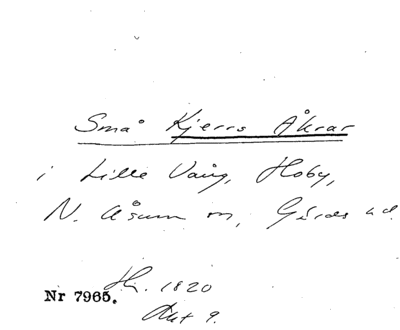 Små Kjerrs Åkrar
i Lille Vång, Hoby,
N. Åsum sn, Gärds hd.
Hi. 1820
Nr 7965.
Akt 9.